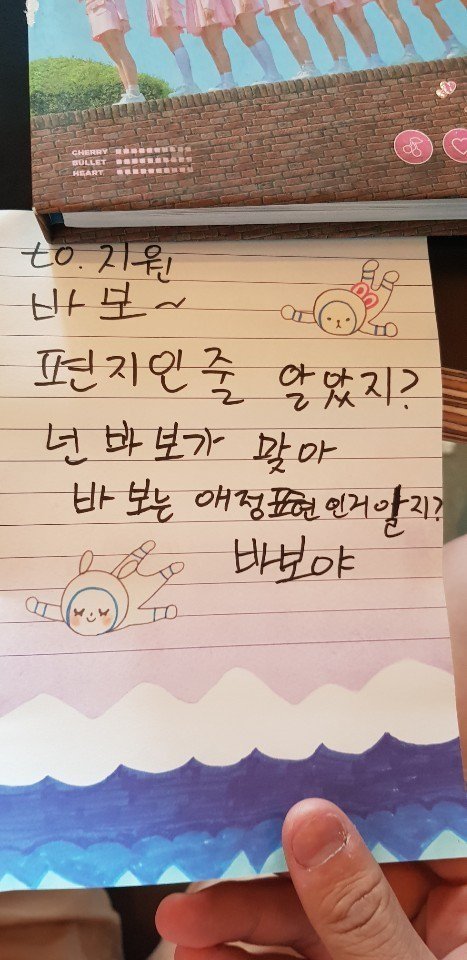 CHERRY
BULLET
HEART
to. 지원
바보~
편지인줄 알았지?
넌 바보가 맞아
바보는 애정표현인거알지?
바보야